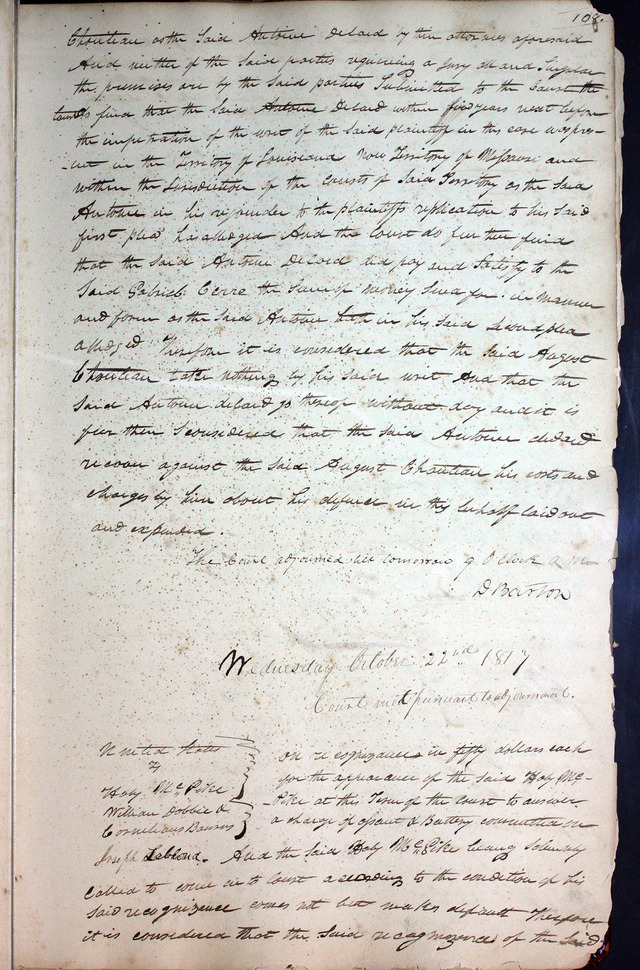 108.
Chouteau as the Said Antoine Delard by their attornies aforesaid
And neither of the Said parties requiring a jury all and Singular
the premises are by the Said parties Submitted to the Court the
Court do find that the Said Antoine Delard within five years next before
the impetration of the writ of the Said plaintiff in this case was pres-
-ent in the Territory of Louisiana Now Territory of Missouri and
within the Jurisdiction of the Courts of Said Territory as the Said
Antoine in his rejoinder to the plaintiffs replication to his Said
first plea has alledged And the Court do further find
that the Said Antoine Delard did pay and Satisfy to the
Said Gabriel Cerre the Sum of money Sued for in Manner
and form as the Said Antoine hath in his Said Second plea
alledged Therefore it is considered that the Said August
Chouteau take nothing by his Said writ And that the
Said Antoine delard go thereof without day and it is
further considered that the Said Antoine delard
recover against the Said August Chouteau his costs and
charges by him about his defence in this behalf laid out
and expended.
The Court adjourned till tomorrow 9 O'Clock a m
D Barton
Wednesday October 22nd 1817
Court met pursuant to adjournment.
United States
v
Haly McPike
William Dobbie &
Cornelius
on recognizance in fifty dollars each
for the appearance of the Said Haly Mc-
-Pike at this Term of the court to answer
a charge of assault & Battery committed on
Joseph Leblond. And the Said Haly McPike being Solemnly
Called to come in to Court according to the condition of his
Said recognizance comes not but makes default Therefore
it is considered that the Said recognizance of the Said